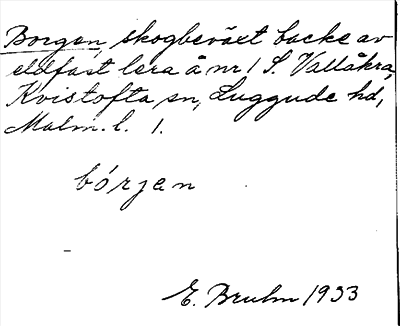 Borgen, skogbeväxt backe av
eldfast lera å nr 1 S. Vallåkra,
Kvistofta sn, Luggude hd,
Malm. l. 1.
bórjen
E. Bruhn 1933